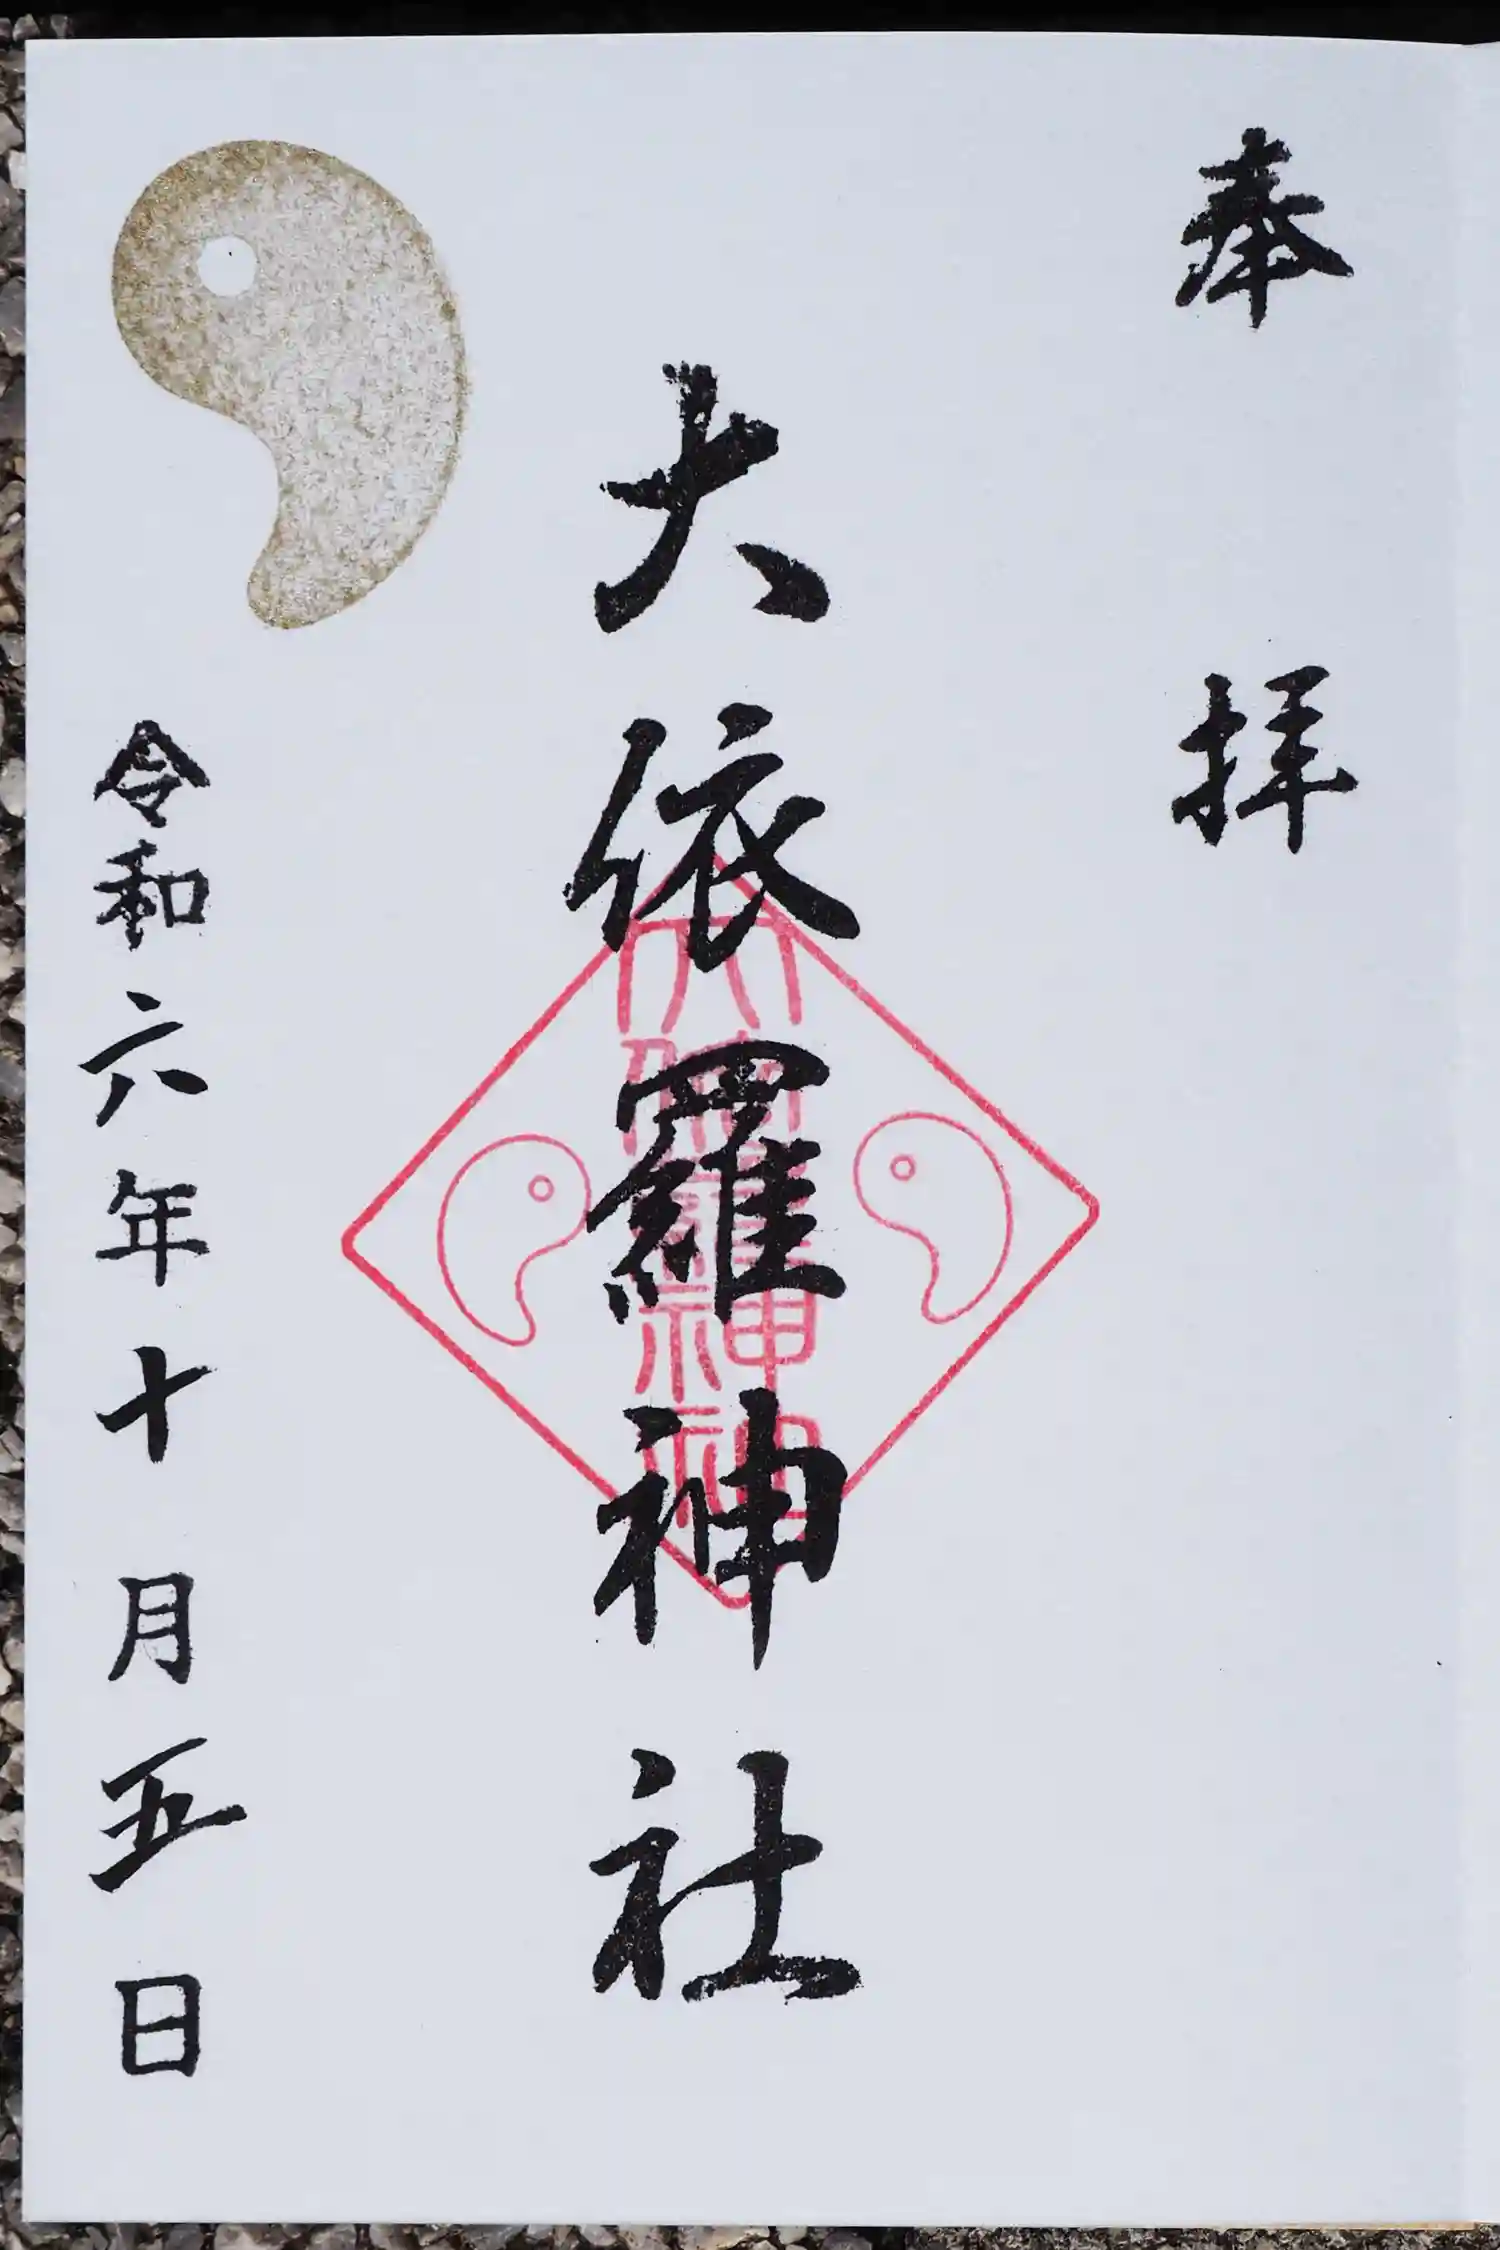 奉拝
大依羅神社
大依羅神社
令和六年十月五日